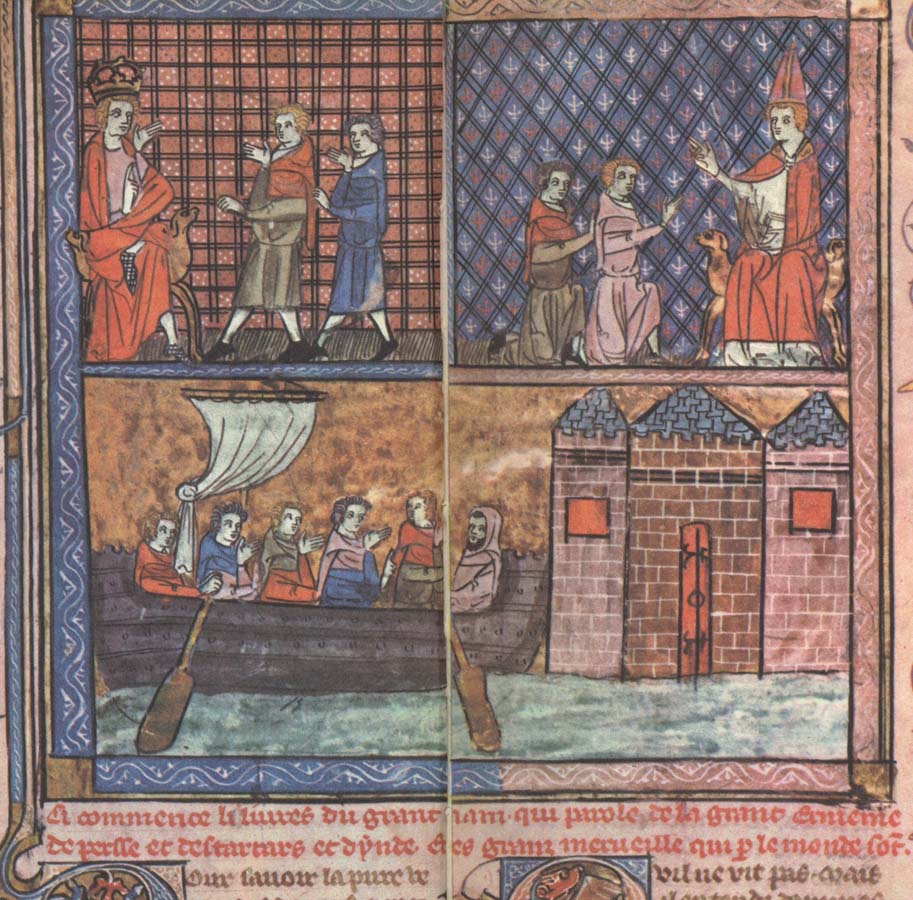 Ci commence li liures du grant aam · qui parole de la grant Ermenie
de persse et destartars et dynde es granz merueille qui p le monde sot ·
our sauoir la pure ve
vil ne vit pas · mais